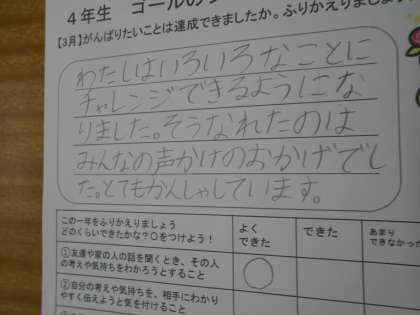 4年生　ゴールの
【3月】がんばりたいことは達成できましたか。ふりかえりましょう
わたしはいろいろなことに
チャレンジできるようにな
りました。そうなれたのは
みんなの声かけのおかげでし
た。とてもかんしゃしています。
この一年をふりかえりましょう
どのくらいできたかな？○をつけよう！
よくできた
できた
あまりできなかった
①友達や家の人の話を聞くとき、その人
の考えや気持ちをわかろうとすること
②自分の考えや気持ちを、相手にわかり
やすく伝えようと気を付けること